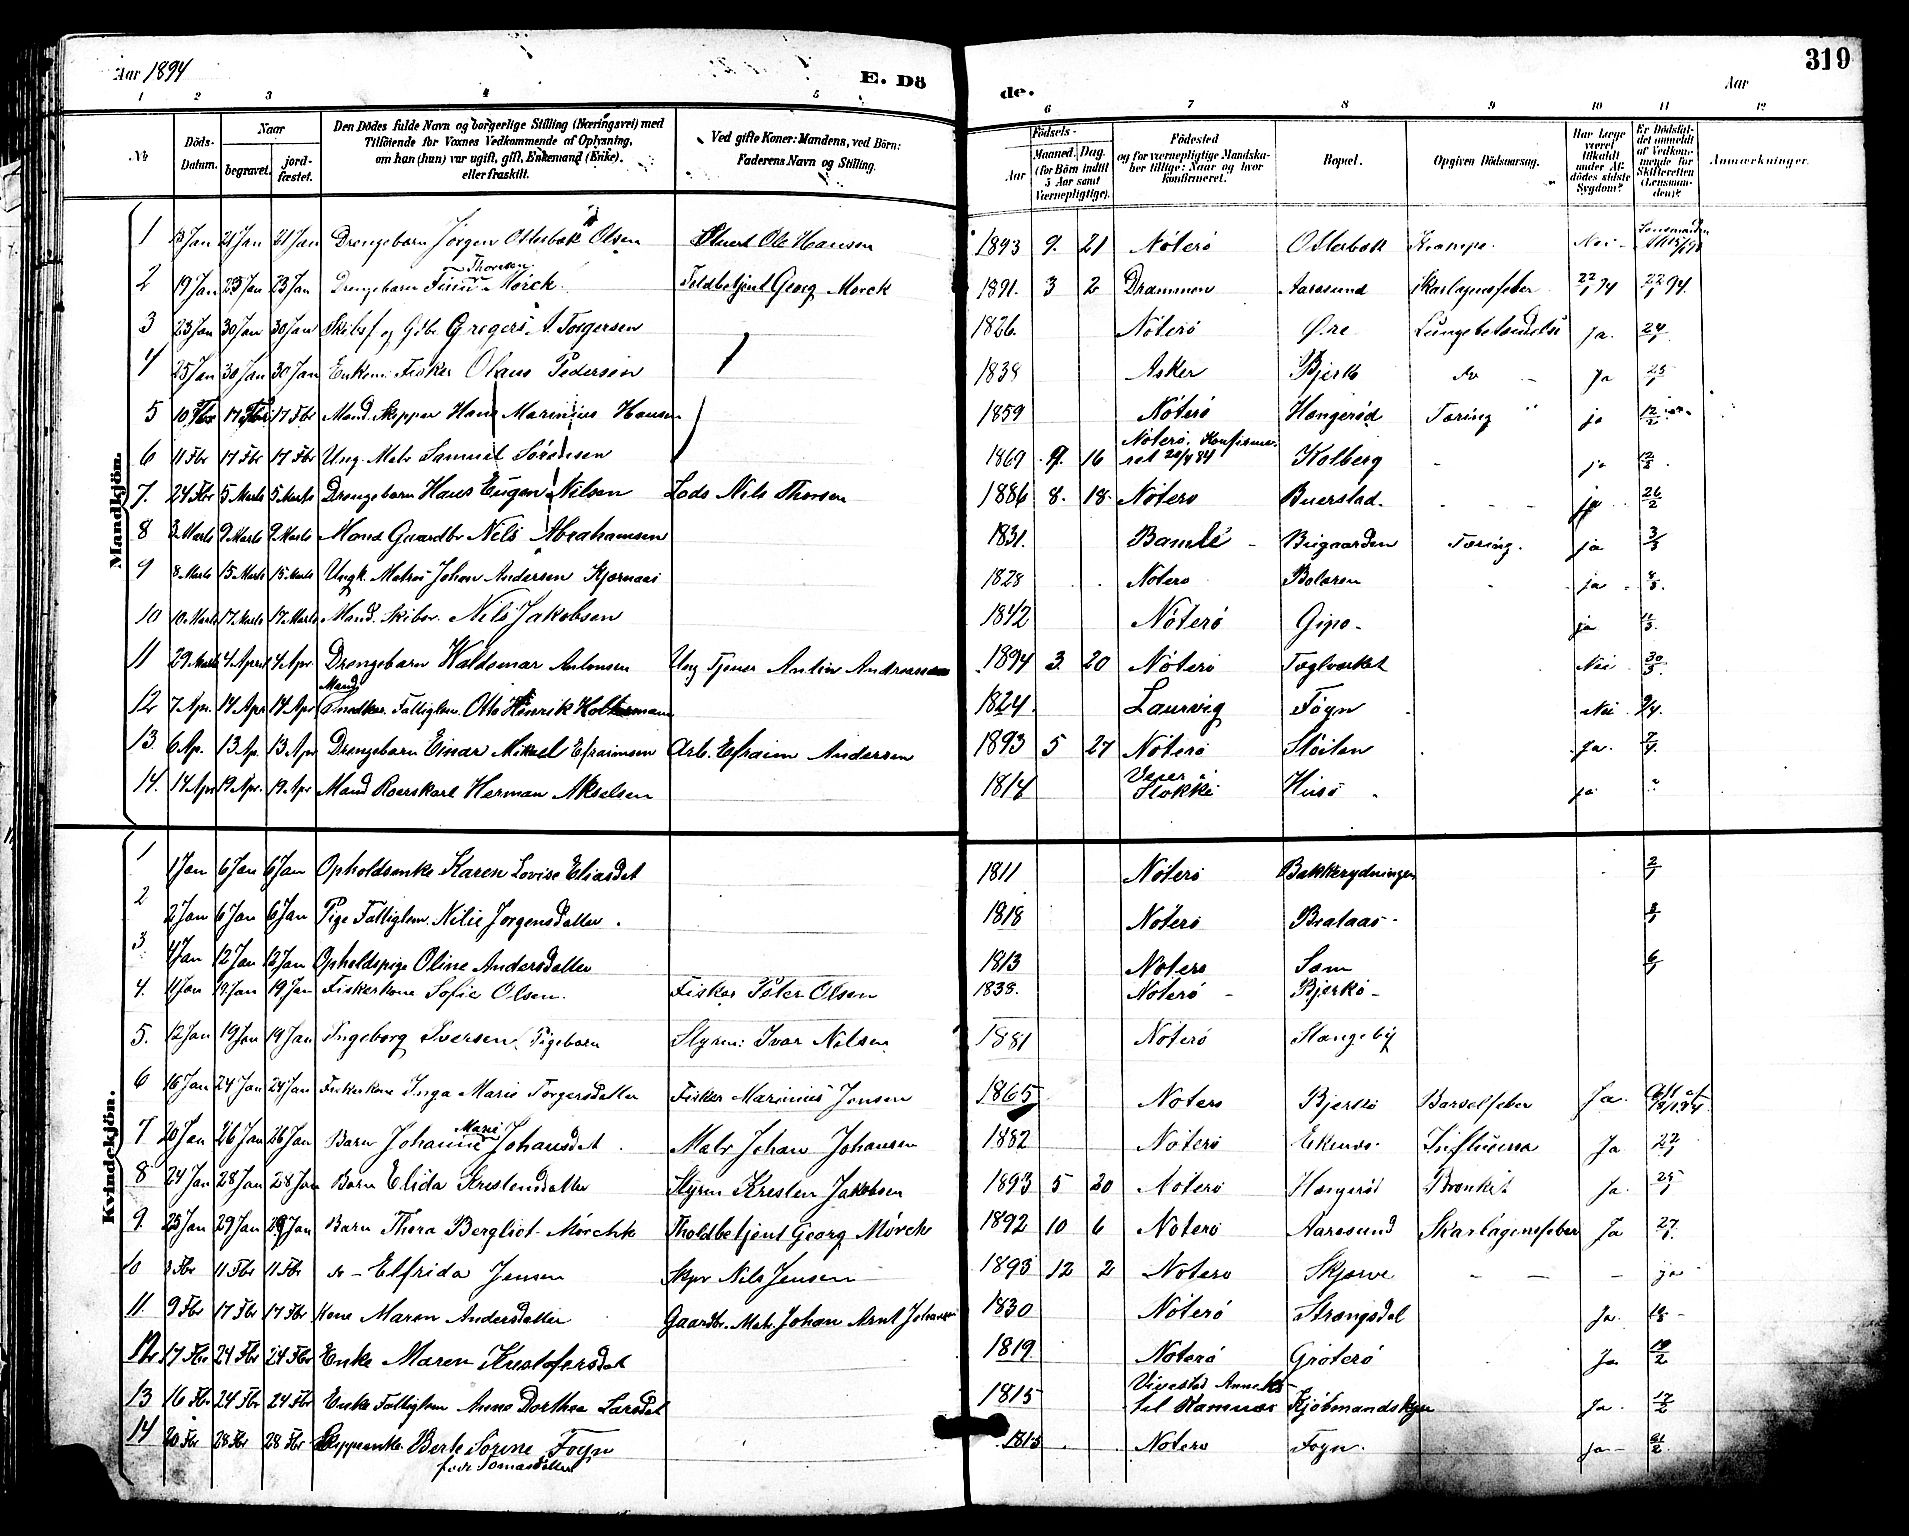 Aar 1894
E. Dö
de.
319
Aar
1 2 3 4 5 6 7 8 9 10 11 12
No
Döds-Datum.
Naar
begravet.
jord-fæstet.
Den Dödes fulde Navn og borgerlige Stilling (Næringsvei) med
Tilföiende for Voxnes Vedkommende af Oplysning,
om han (hun) var ugift, gift, Enkemand (Enke).
eller fraskilt.
Ved gifte Koner: Mandens, ved Börn:
Faderens Navn og Stilling.
Födsels-
Aar
Maaned. Dag.
(for Börn indtil 5 Aar samt Værnepligtige).
Födested
og for værnepligtige Mandska-
ber tillige: Naar og hvor
konfirmeret.
Bopæl.
Opgiven Dödsaarsag.
Har Læge været tilkaldt under Afdödes sidste Sygdom?
Er Dödsfaldet anmeldt af Vedkommende for Skifteretten (Lensmanden)?
Anmærkninger.
Mandkjön.
1 13 Jan 21 Jan 21 Jan Drengebarn Jörgen Osterbæk Olsen Ole Hansen 1893 9. 21 Nöterö Osterbæk Krampe Nei
2 19 Jan 23 Jan 23 Jan Drengebarn Finn Thoresen Mörck Toldbetjent Georg Morck 1891. 3 2 Drammen Aarosund Skarlagensfeber 22/1 94 22/1 94.
3 23 Jan 30 Jan 30 Jan Skibsf og Gdbr Gregers A. Torgersen 1826. Nöterö Öre Lungebetændelse ja. 24/1
4 25 Jan 30 Jan 30 Jan Enkem. Fisker Olaus Pedersen 1838 Asker Bjerk Do Ja 25/1
5 10 Fbr 17 Fbr 17 Fbr Mand. Skipper Hans Marinius Hansen 1859 Nöterö Hængeröd Tæring ja 12/2
6 11 Fbr 17 Fbr 17 Fbr Ung. Matr Samuel Sörensen 1869 9. 16 Nöterö. Konfirme-ret Kolberg ja 12/2
7. 24 Fbr 5 Marts 5 Marts Drengebarn Hans Eugen Nilsen Lods Nils Thorsen 1886 8. 18. Nöterö Buerstad. ja 26/2
8 3 Marts 9 Marts 9 Marts Mand Gaardbr Nils Abrahamsen 1831. Bamle Brigaarden Tæring. ja 3/3
9 8 Marts 15 Marts 15 Marts Ungk. Matros Johan Andersen Kjærnaas 1828 Nötero Bolæren ja 8/3.
10 10 Marts 17 Marts 17 Marts Mand. Skibsr. Nils Jakobsen 1842 Nöterö Gipö ja 11/3.
11 29 Marts 4 April 4 Apr Drengebarn Waldemar Antonsen Ung Tjener Anton Andreassen 1894 3. 20 Nöterö Teglverket Nei 30/3.
12 7 Apr. 14 Apr 14 Apr Mand Snedker. Fattiglem. Otto Henrik Holtermann 1824. Laurvig Föyn Nei 9/4.
13. 6 Ap. 13 Ap. 13 Apr Drengebarn Einar Mikael Efraimsen Arb. Efraim Andersen 1893 5 27 Nöterö Stöiten Ja. 7/4.
14. 14 Apr 19 Apr. 19 Apr Mand Roerskarl Herman Akselsen 1814 Veier i Stokke Husö ja
Kvindekjön.
1 1 Jan 6 Jan 6 Jan Opholdsenke Karen Lovise Eliasdet 1811 Nöterö Bakkerydningen 2/1
2 2 Jan 6 Jan 6 Jan Pige Fattiglem. Nilie Jorgensdatter. 1818 Nöterö Brataas 3/1
3. 4 Jan 12 Jan 12 Jan Opholdspige Oline Andersdatter 1813 Nöterö Sem 6/1
4. 11 Jan 19 Jan 19 Jan Fiskerkone Sofie Olsen. Fisker Peter Olsen 1838. Nöterö Bjerkö
5. 12 Jan 19 Jan 19 Jan Ingeborg Iversen Pigebarn Styrm: Ivar Nilsen 1881 Nöterö Stangeby
6 16 Jan 24 Jan 24 Jan Fiskerkone Inga Marie Torgersdatter Fisker Marinius Jensen 1865 Nötero Bjerkö Barselfeber Ja.
7 20 Jan 26 Jan 26 Jan Barn Johanne Marie Johansdat. Matr Johan Johansen 1882 Nöterö Ekenæs Influensa Ja 22/1
8 24 Jan 28 Jan 28 Jan Barn Elida Kristensdatter Styrm Kristen Jakobsen 1893 5 20 Nöterö Hængeröd Bronkit Ja. 25/1
9. 25 Jan 29 Jan 29 Jan Barn Thora Bergliot Mörchk Tholdbetjent Georg Mörck 1892 10 6 Nöterö Aarosund Skarlagensfeber Ja 27/1.
10 3 Fbr 11 Fbr 11 Fbr do - Elfrida Jensen Skpr Nils Jensen 1893 12 2 Nötero Skjerve ja
11. 9 Fbr 17 Fbr 17 Fbr Kone Maren Andersdatter Gaardbr. Matr. Johan Arnt Johansen 1830 Nöterö Strængsdal Ja.
12 17 Fbr 24 Fbr 24 Fbr Enke Maren Kristofersdat 1819 Nöterö Gröterö Ja 19/2
13 16 Fbr 24 Fbr 24 Fbr Enke Fattiglem Anne Dorthea Larsdat 1815 Vivestad Anneks til Ramnæs Kjöbmandskjær Ja. 17/2
14 20 Fbr 28 Fbr 28 Fbr Skipperenke. Berte Sorine Foyn föd Tomasdatter 1813 Nötero Foyn. ja 21/2